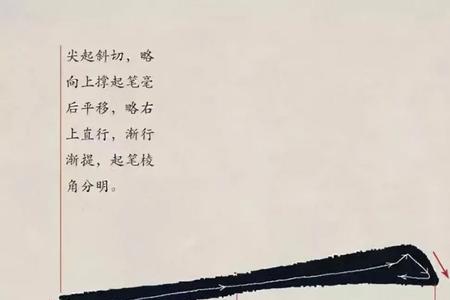 尖起斜切，略
向上撑起笔毫
后平移，略右
上直行，渐行
渐提，起笔棱
角分明。